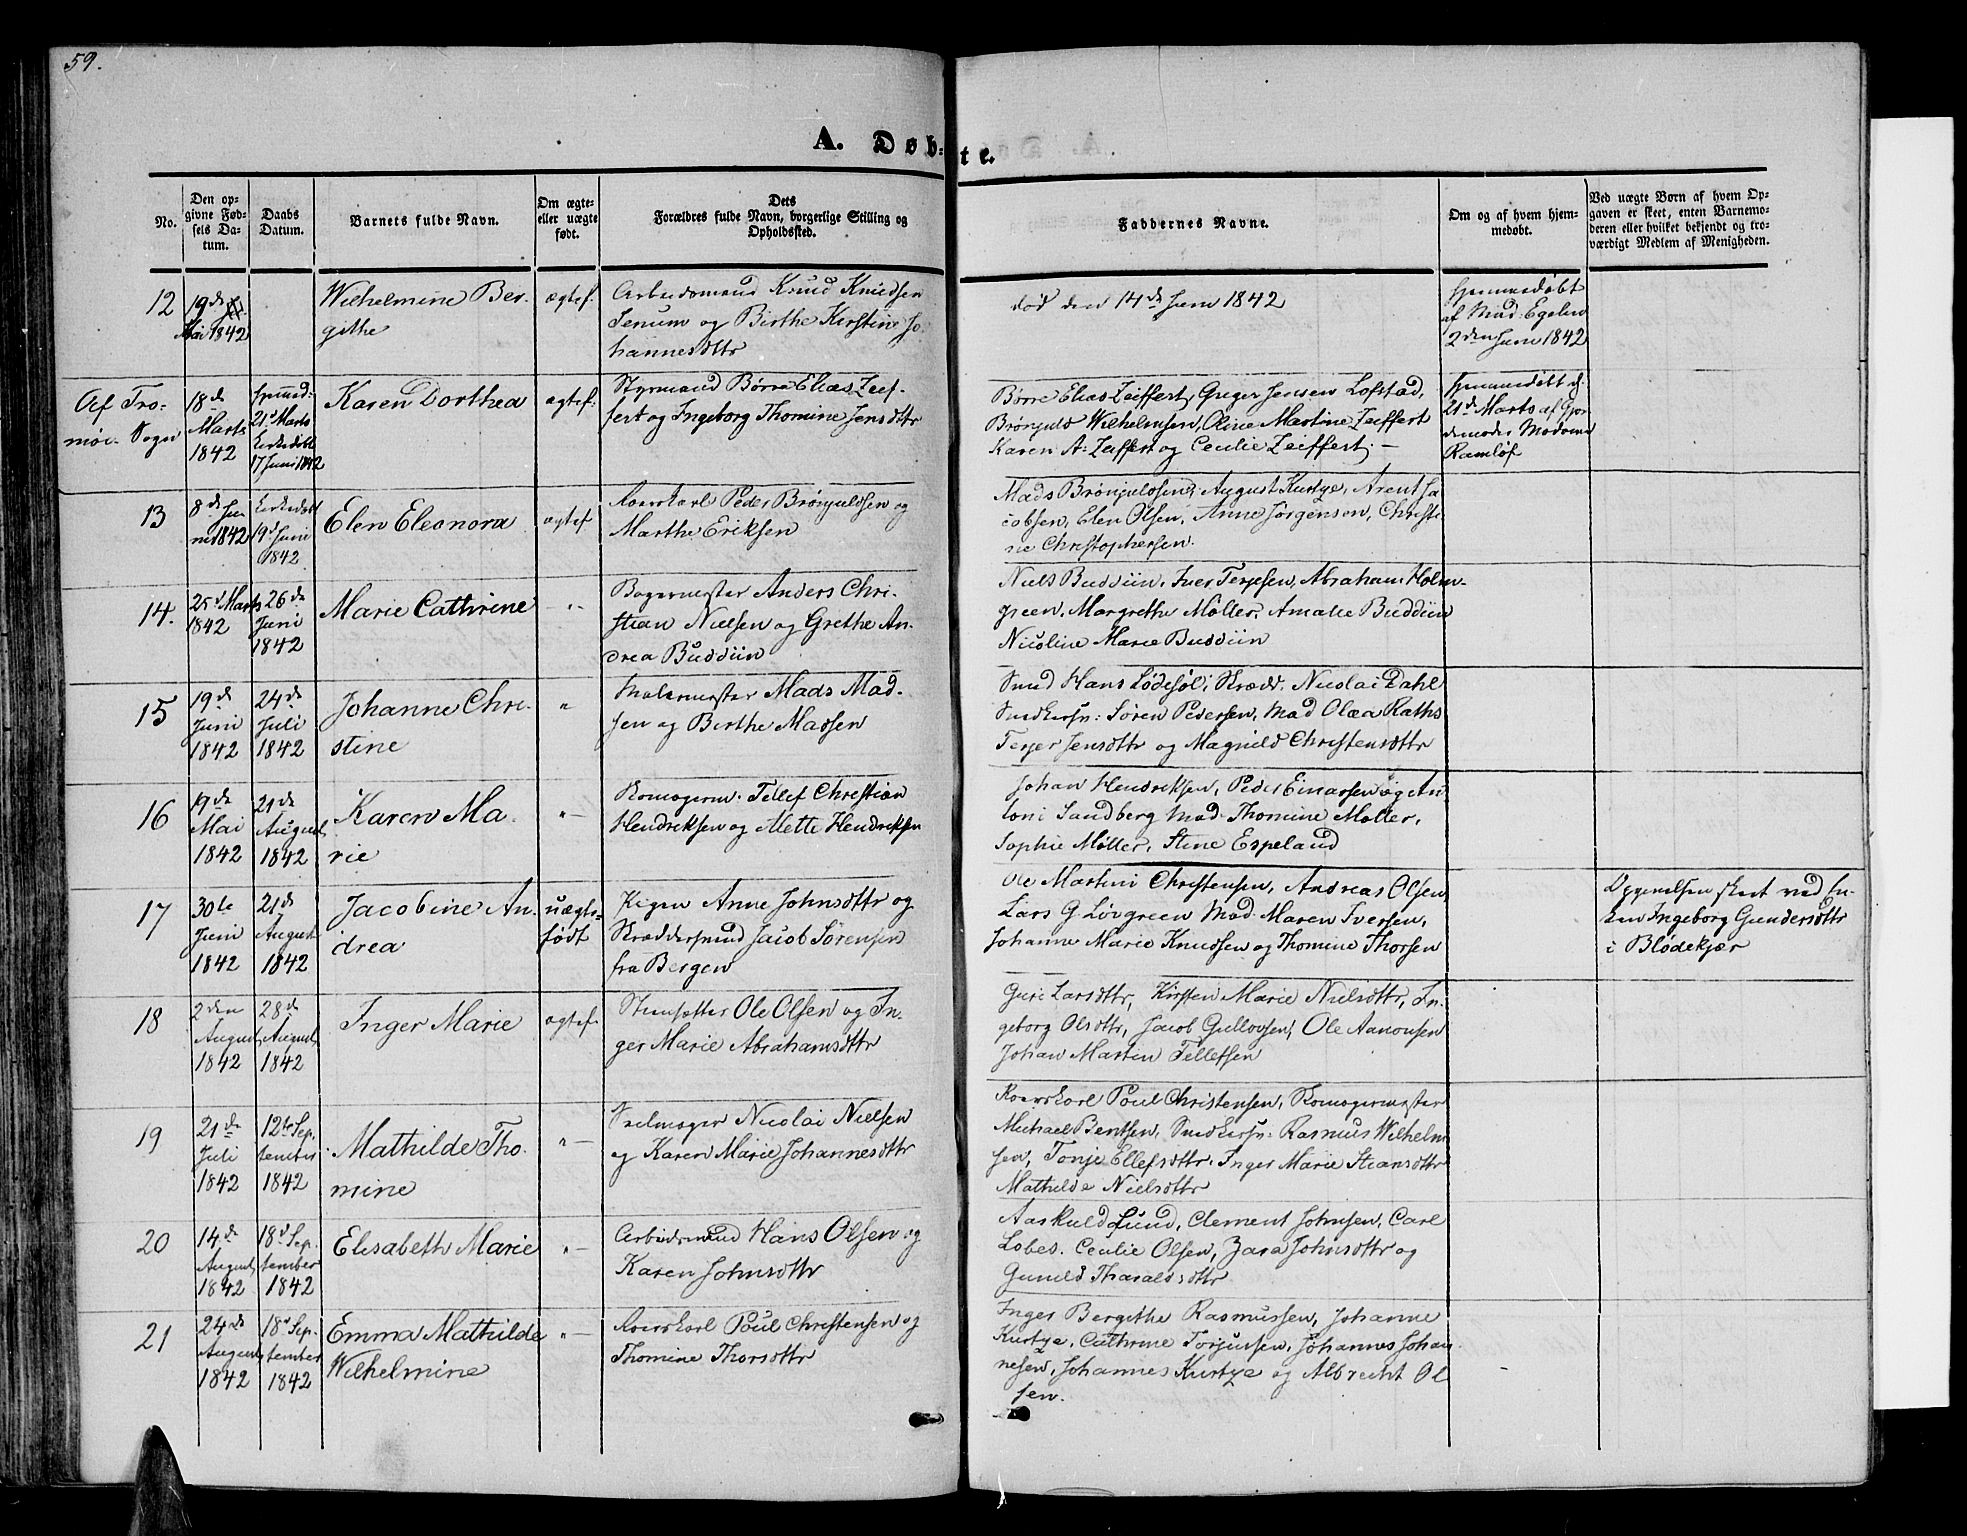 59.
A. Døb-
te.
No.
Den op-
givne Fød-
sels Da-
tum.
Daabs
Datum.
Barnets fulde Navn.
Om ægte-
eller uægte
født.
Dets
Forældres fulde Navn, borgerlige Stilling og
Opholdssted.
Faddernes Navne.
Om og af hvem hjem-
medøbt.
Ved uægte Børn af hvem Op-
gaven er skeet, enten Barnemo-
deren eller hvilket bekjendt og tro-
værdigt Medlem af Menigheden.
12
19de
Mai 1842
Wilhelmine Ber-
githe
ægtef.
Arbeidsmand Knud Knudsen
Senum og Birthe Kirstine Jo-
hannesdttr
død den 14de Juni 1842
hjemmedøbt
af Mad. Egelen
2den Juni 1842
Af Tro-
møe Sogn
18de
Marts
1842
hjemmed.
21d Marts
kirkedøbt
17 Juni 1842
Karen Dorthea
ægtef.
Styrmand Børre Elias Zeif-
fert og Ingeborg Thomine Jensdttr
Børre Elias Zeiffert, Greger Jensen Lofstad,
Brønjuld Wilhelmsen, Oline Martine Zeiffert
Karen A. Zeiffert og Cecilie Zeiffert. —
hjemmedøbt d.
21de Marts af Gjor-
demoder Madame
Ramløf
13
8de Ju-
ni 1842
kirkedøbt
19d Juni
1842
Elen Eleonora
ægtef.
Roerskarl Peder Brønjuldsen og
Marthe Eriksen
Mads Brønjuldsen, August Kurtze, Arent Ja-
cobsen, Elen Olsen, Anne Jørgensen, Christi-
ne Christophersen.
14.
25d Marts
1842
26de
Juni
1842
Marie Cathrine
"
Bagermester Anders Chri-
stian Nielsen og Grethe An-
drea Buddiin
Niels Buddiin, Iver Terjesen, Abraham Holm-
green, Margrethe Møller, Amalie Buddiin
Nicoline Marie Buddiin
15
19de
Juni
1842
24de
Juli
1842
Johanne Chri-
stine
"
Malermester Mads Mad-
sen og Birthe Madsen
Smed Hans Lødesøl, Skrædd. Nicolai Dahl
Smedkersv: Søren Pedersen, Mad Olæa Raths
Terjer Jensdttr og Magnild Christensdttr
16
19de
Mai
1842
21de
August
1842
Karen Ma-
rie
"
Skomagerm. Tellef Christian
Hendriksen og Mette Hendriksen
Johan Hendriksen, Peder Einarsen og An-
toni Sandberg Mad. Thomine Møller,
Sophie Møller, Stine Espeland
17
30te
Juni
1842
21de
August
1842
Jacobine An-
drea
uægte-
født
Pigen Anne Johnsdttr og
Skræddersvend Jacob Sørensen
fra Bergen
Ole Martini Christensen, Andreas Olsen,
Lars G. Løvgreen Mad. Maren Iversen,
Johanne Marie Knudsen og Thomine Thorsen
Opgivelsen skeet ved En-
ken Ingeborg Gundersdttr
i Blødekjær
18
2den
August
1842
28de
August
1842
Inger Marie
ægtef.
Steensætter Ole Olsen og In-
ger Marie Abrahamsdttr
Guri Larsdttr, Kirsten Marie Nielsdttr, In-
geborg Olsdttr, Jacob Gullovsen, Ole Aanonsen
Johan Martin Tellefsen
19
21de
Juli
1842
12te Sep-
tember
1842
Mathilde Tho-
mine
"
Seilmager Nicolai Nielsen
og Karen Marie Johannesdttr
Roerskarl Poul Christensen, Skomagermester
Michael Bentsen, Smedkersv: Rasmus Wilhelm-
sen, Tonje Ellefsdttr, Inger Marie Steansdttr
Mathilde Nielsdttr
20
14de
August
1842
18d Sep-
tember
1842
Elisabeth Marie
"
Arbeidsmand Hans Olsen og
Karen Johnsdttr
Aaskuld Lund, Clement Johnsen, Carl
Lobes. Cecilie Olsen, Zara Johnsdttr og
Gunild Tharaldsdttr
21
24de
August
1842
18d Sep-
tember
1842
Emma Mathilde
Wilhelmine
"
Roerskarl Poul Christensen og
Thomine Thorsdttr
Inger Bergithe Rasmussen, Johanne
Kurtze, Cathrine Torjussen, Johannes Johan-
nesen, Johannes Kurtze og Albrecht Ol-
sen.